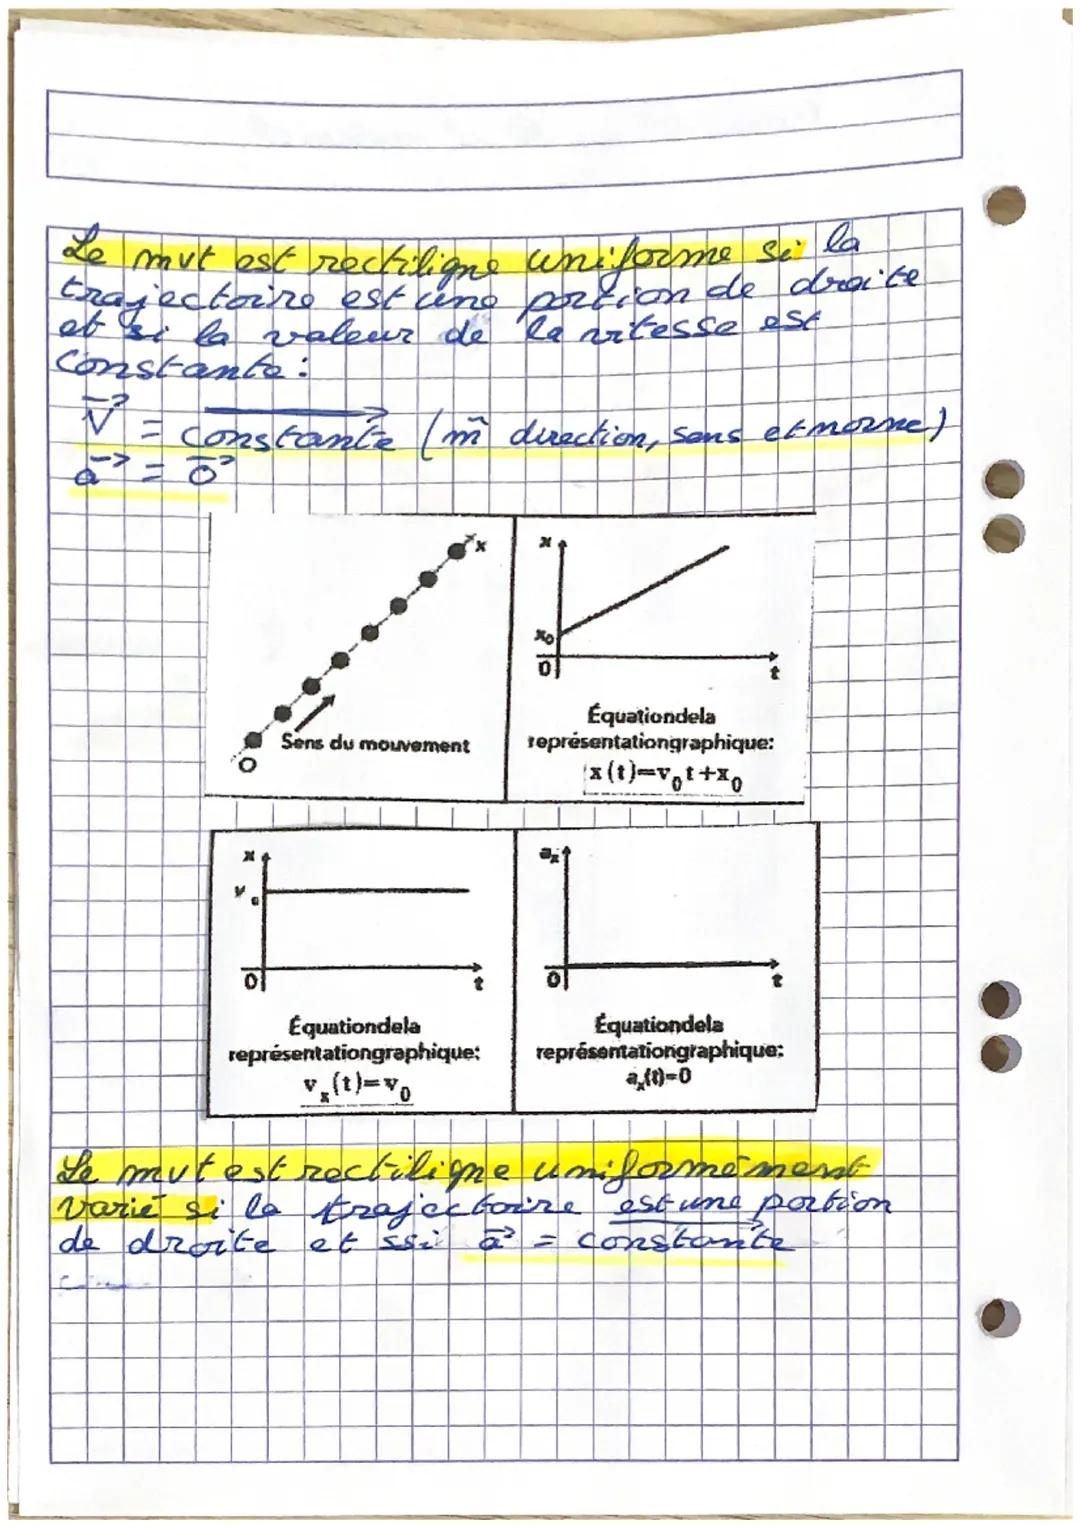 Le mvt est rectiligne uniforme si la
trajectoire est une portion de droite
et si la valeur de la vitesse est
Constante :
V⃗ = constante (m̂ direction, sens et norme)
a⃗ = 0⃗
x
O
Sens du mouvement
x
x₀
0
t
Équationdela
représentationgraphique:
x(t)=v₀t+x₀
x
v₀
0
t
Équationdela
représentationgraphique:
vₓ(t)=v₀
aₓ
0
t
Équationdela
représentationgraphique:
aₓ(t)=0
Le mvt est rectiligne uniformément
varié si la trajectoire est une portion
de droite et ssi a⃗ = constante